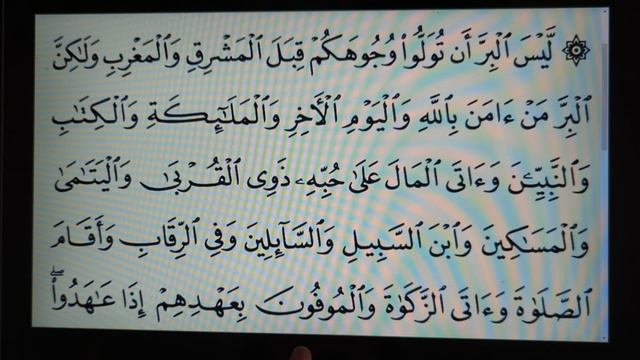 ۞ لَّيْسَ ٱلْبِرَّ أَن تُوَلُّوا۟ وُجُوهَكُمْ قِبَلَ ٱلْمَشْرِقِ وَٱلْمَغْرِبِ وَلَـٰكِنَّ
ٱلْبِرَّ مَنْ ءَامَنَ بِٱللَّهِ وَٱلْيَوْمِ ٱلْأَخِرِ وَٱلْمَلَـٰٓئِكَةِ وَٱلْكِتَـٰبِ
وَٱلنَّبِيِّـۧنَ وَءَاتَى ٱلْمَالَ عَلَىٰ حُبِّهِۦ ذَوِى ٱلْقُرْبَىٰ وَٱلْيَتَـٰمَىٰ
وَٱلْمَسَـٰكِينَ وَٱبْنَ ٱلسَّبِيلِ وَٱلسَّآئِلِينَ وَفِى ٱلرِّقَابِ وَأَقَامَ
ٱلصَّلَوٰةَ وَءَاتَى ٱلزَّكَوٰةَ وَٱلْمُوفُونَ بِعَهْدِهِمْ إِذَا عَـٰهَدُوا۟ ۖ